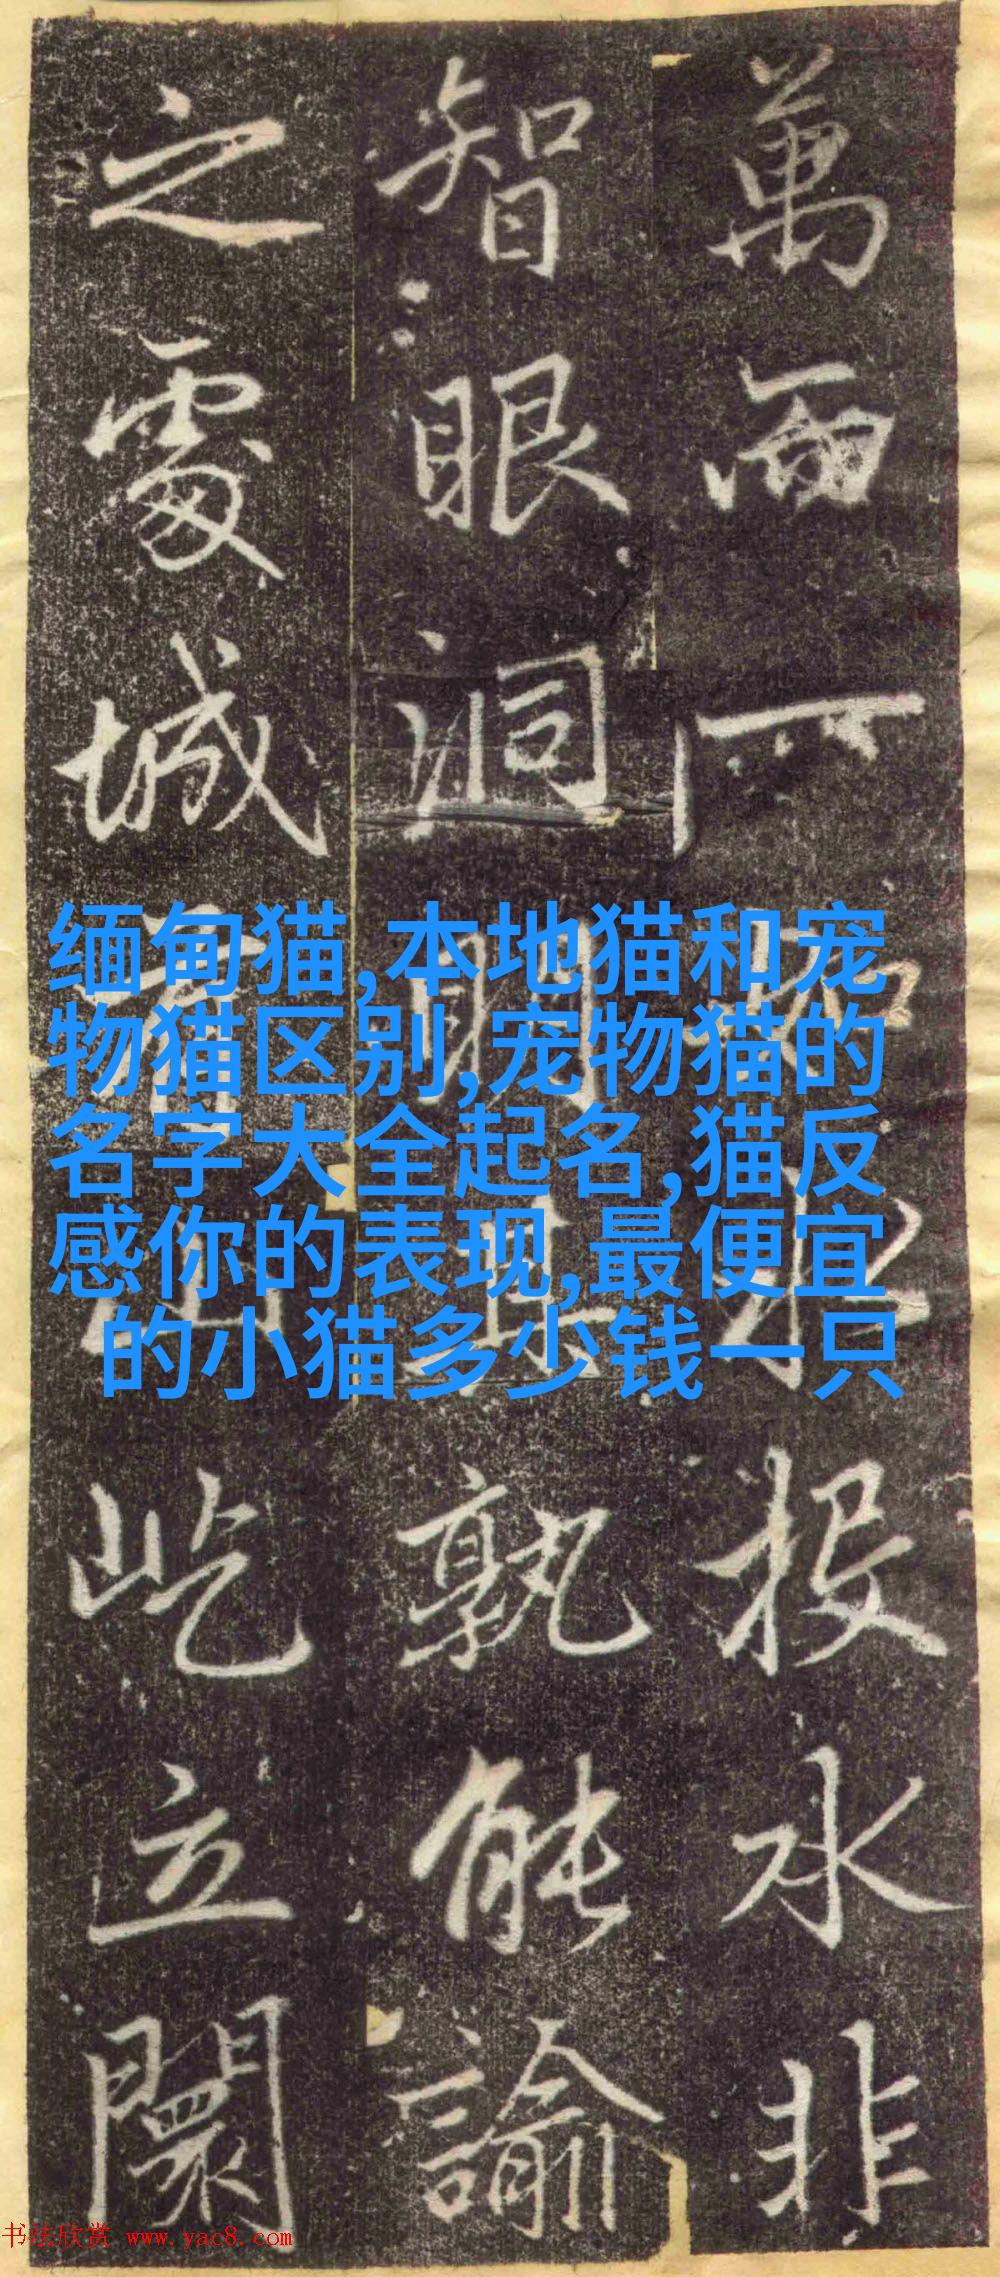 萬 一 如水投水非
智眼洞明其孰能諭
之處城 山屹立闤
缅甸猫,本地猫和宠
物猫区别,宠物猫的
名字大全起名,猫反
感你的表现,最便宜
的小猫多少钱一只
书法欣赏 www.yac8.com